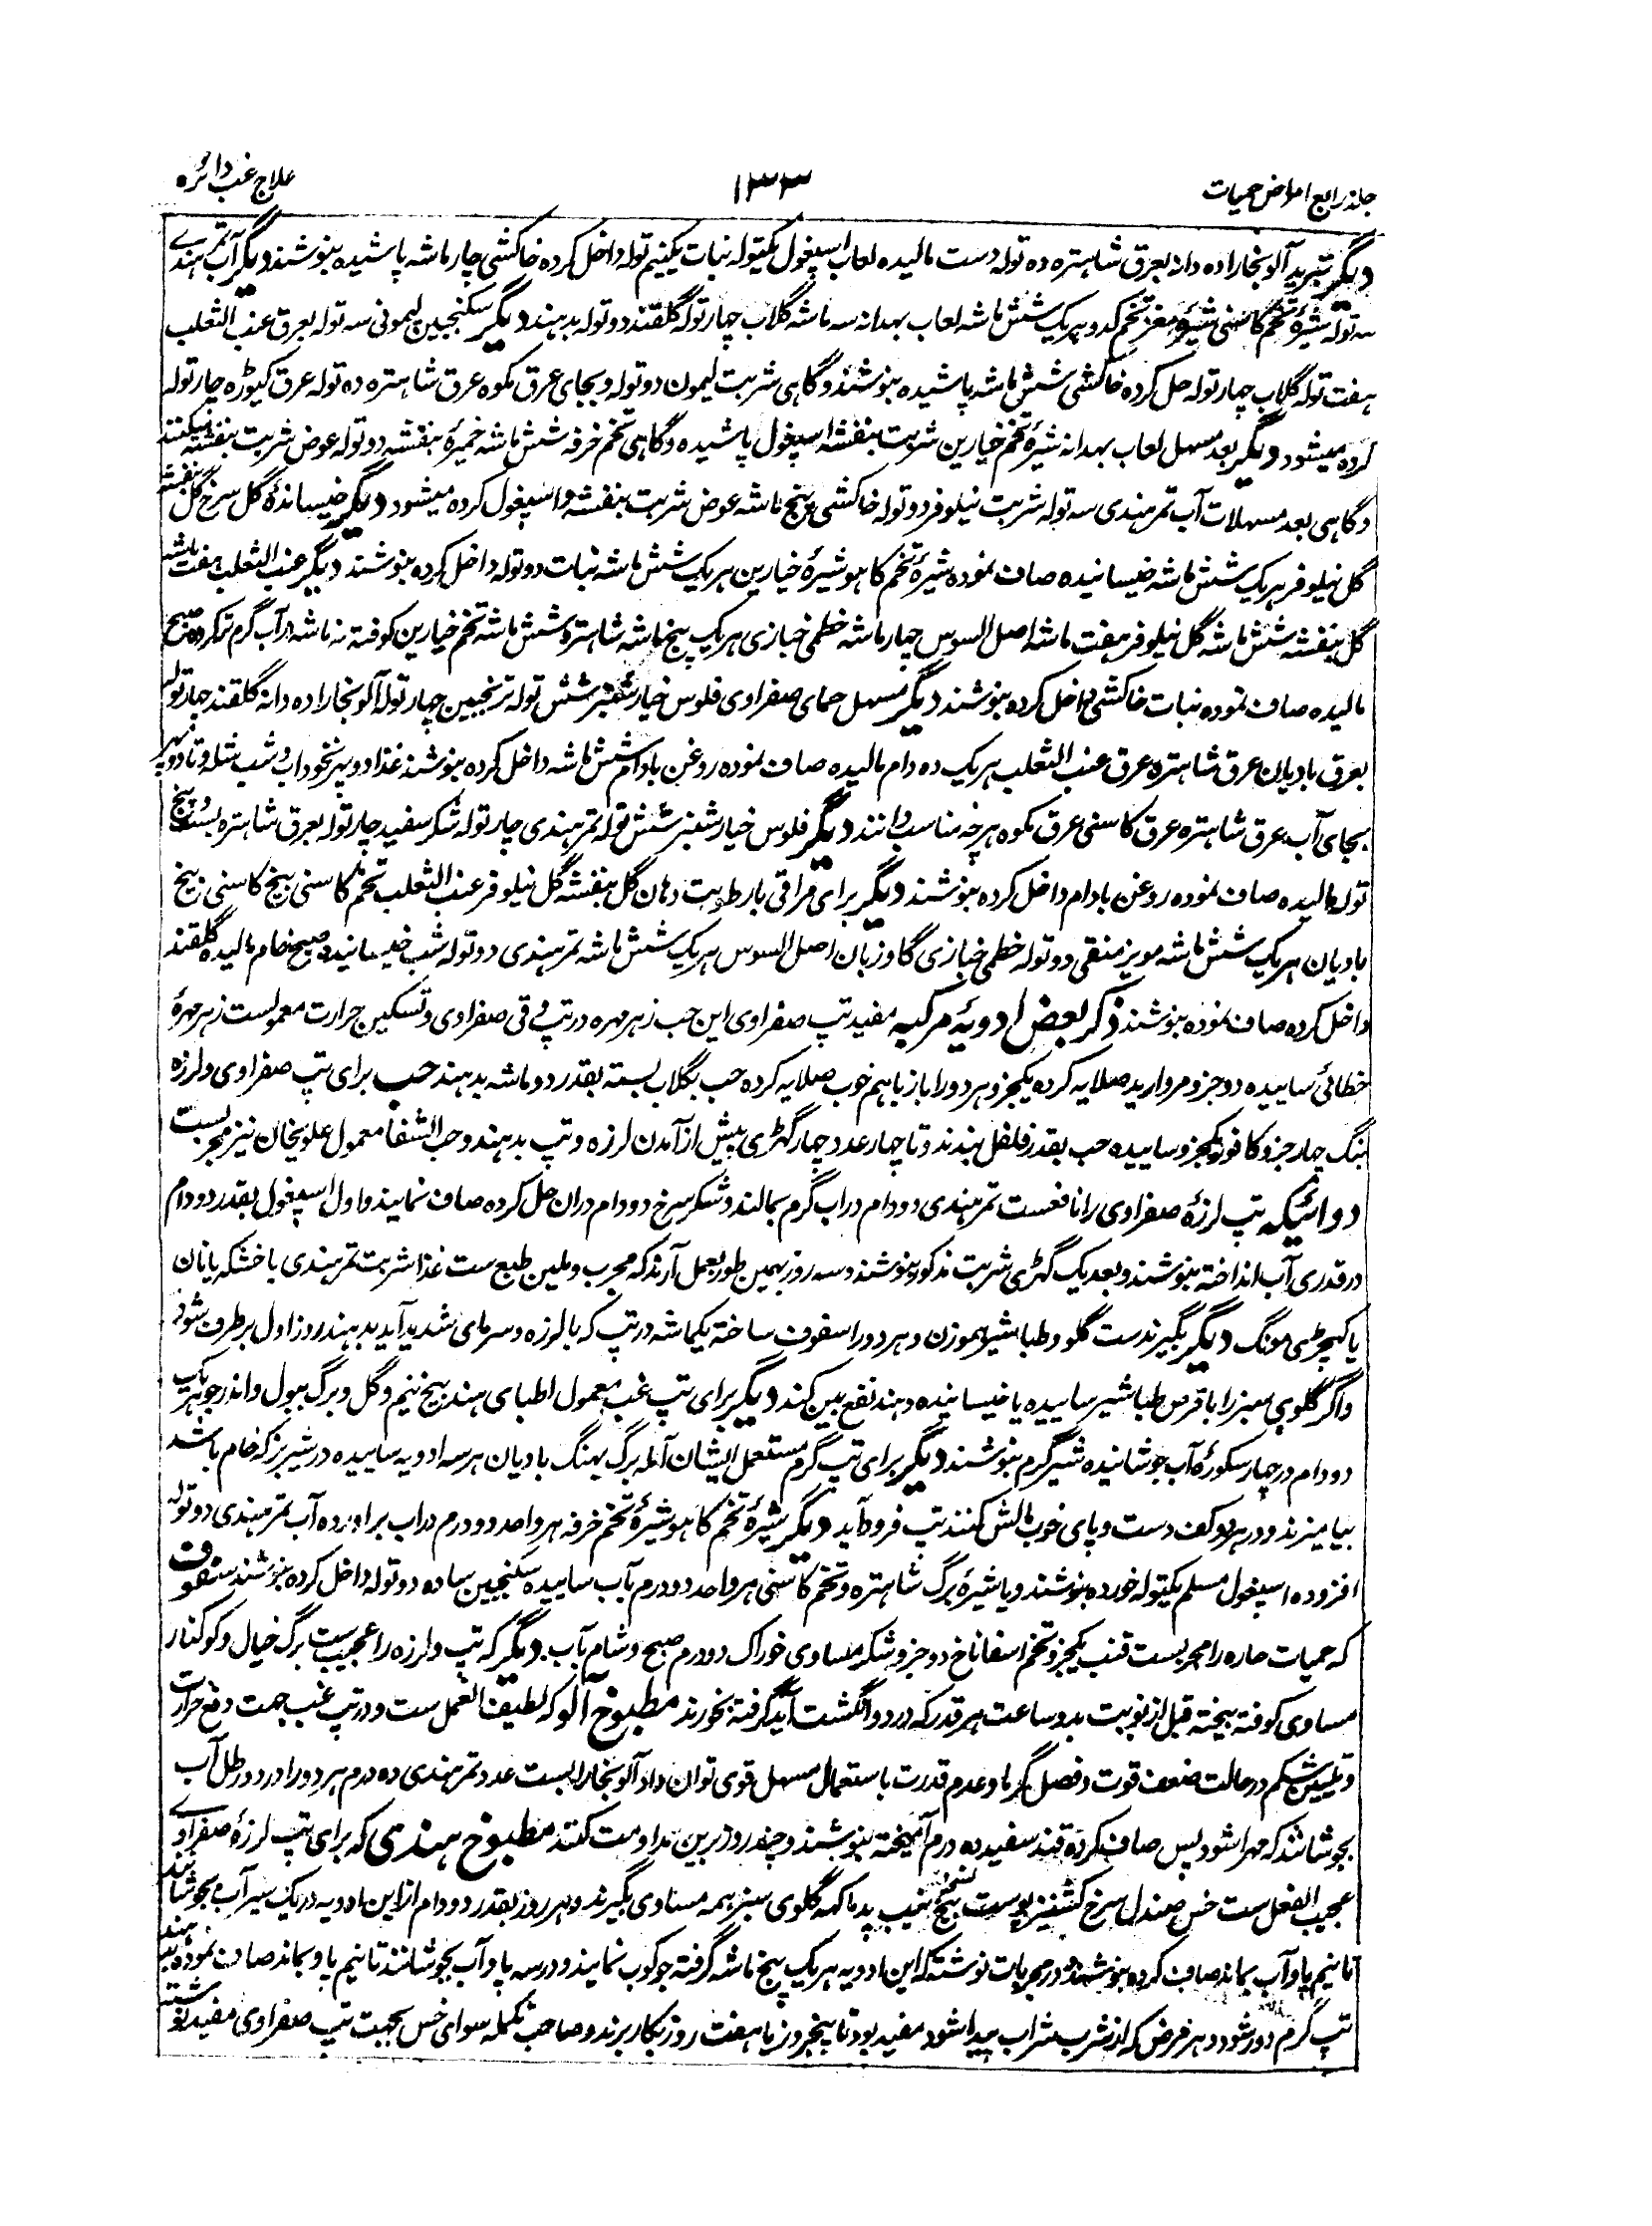 جلد رابع امراض حمیات
۱۳۳
علاج غب دائره
دیگر تبرید آلو بخارا ده دانه بعرق شاہتره ده توله دست مالیده لعاب اسپغول یکتوله نبات یکنیم توله داخل کرده خاکشی چار ماشه پاشیده بنوشند دیگر آب تمر ہندے
سه توله شیرۂ تخم کاسنی شیرۂ مغز تخم کدو ہریک شش ماشه لعاب بہدانه سه ماشه گلاب چہار توله گلقند دو توله بدہند دیگر سکنجبین لیمونی سه توله بعرق عنب الثعلب
ہفت توله گلاب چہار توله حل کرده خاکشی شش ماشه پاشیده بنوشند و گاہی شربت لیمون دو توله و بجای عرق مکوه عرق شاہتره ده توله عرق کیوڑه چار توله
کرده میشود دیگر بعد مسہل لعاب بہدانه شیرۂ تخم خیارین شربت بنفشه اسپغول پاشیده و گاہی تخم خرفه شش ماشه خمیرۂ بنفشه دو توله عوض شربت بنفشه میکنند
و گاہی بعد مسہلات آب تمر ہندی سه توله شربت نیلوفر دو توله خاکشی پنج ماشه عوض شربت بنفشه و اسپغول کرده میشود دیگر خیسانده گل سرخ گل بنفشه
گل نیلوفر ہریک شش ماشه خیسانیده صاف نموده شیرۂ تخم کاہو شیرۂ خیارین ہریک شش ماشه نبات دو توله داخل کرده بنوشند دیگر عنب الثعلب ہفت ماشه
گل بنفشه شش ماشه گل نیلوفر ہفت ماشه اصل السوس چہار ماشه خطمی خبازی ہریک پنج ماشه شاہتره شش ماشه تخم خیارین کوفته نه ماشه در آب گرم تر کرده صبح
مالیده صاف نموده نبات خاکشی داخل کرده بنوشند دیگر مسہل حمای صفراوی فلوس خیار شنبر شش توله ترنجبین چہار توله آلو بخارا ده دانه گلقند چار توله
بعرق بادیان عرق شاہتره عرق عنب الثعلب ہریک ده دام مالیده صاف نموده روغن بادام شش ماشه داخل کرده بنوشند غذا دوپہر نخوداب و شب شله و تا دوپہر
بجای آب عرق شاہتره عرق کاسنی عرق مکوه ہرچه مناسب دانند دیگر فلوس خیار شنبر شش توله تمر ہندی چار توله شکر سفید چار توله بعرق شاہتره بست و پنج
توله مالیده صاف نموده روغن بادام داخل کرده بنوشند دیگر برای مراقی با رطوبت دہان گل بنفشه گل نیلوفر عنب الثعلب تخم کاسنی بیخ کاسنی بیخ
بادیان ہریک شش ماشه مویز منقی دو توله خطمی خبازی گاوزبان اصل السوس ہریک شش ماشه تمر ہندی دو توله شب خیسانیده صبح خام مالیده گلقند
داخل کرده صاف نموده بنوشند ذکر بعض ادویۂ مرکبه مفید تپ صفراوی این حب زہر مہره در تپ و قی صفراوی و تسکین حرارت معمولست زہر مہرۂ
خطائی ساییده دو جزو مروارید صلایه کرده یکجزو ہر دو را باز باہم خوب صلایه کرده حب بگلاب بسته بقدر دو ماشه بدہند حب برای تپ صفراوی و لرزه
بنگ چہار جزو کافور یکجزو ساییده حب بقدر فلفل بندند و تا چہار عدد چہار گہڑی پیش از آمدن لرزه و تپ بدہند و حب الشفا معمول علویخان نیز مجربست
دوائیکه تپ لرزۂ صفراوی را نافعست تمر ہندی دو دام در آب گرم بمالند و شکر سرخ دو دام دران حل کرده صاف نمایند و اول اسپغول بقدر دو دام
در قدری آب انداخته بنوشند و بعد یک گہڑی شربت مذکور بنوشند و سه روز بہمین طور بعمل آرند که مجرب و ملین طبع ست غذا شربت تمر ہندی با خشکه یا نان
یا کہچڑی مونگ دیگر بگیرند ست گلو و طباشیر ہموزن و ہر دو را سفوف ساخته یکماشه در تپ که با لرزه و سرمای شدید آید بدہند روز اول برطرف شود
و اگر گلوی سبز را با قرص طباشیر ساییده یا خیسانیده دہند نفع مبین کند دیگر برای تپ غب معمول اطبای ہند بیخ نیم و گل و برگ ببول و اندرجو ہریک
دو دام در چہار سکورۂ آب جوشانیده شیر گرم بنوشند دیگر برای تپ گرم مستعمل ایشان آمله برگ بہنگ بادیان ہر سه ادویه ساییده در شیر بز که خام باشد
بیامیزند و در ہر دو کف دست و پای خوب مالش کنند تپ فرو آید دیگر شیرۂ تخم کاہو شیرۂ تخم خرفه ہر واحد دو درم در آب برآورده آب تمر ہندی دو توله
افزوده اسپغول مسلم یکتوله خورده بنوشند و یا شیرۂ برگ شاہتره و تخم کاسنی ہر واحد دو درم بآب ساییده سکنجبین ساده دو توله داخل کرده بنوشند سفوف
که حمیات حاره را مجربست قنب یکجزو تخم اسفاناخ دو جزو شکر مساوی خوراک دو درم صبح و شام بآب دیگر که تپ و لرزه را عجیبست برگ خیال و کوکنار
مساوی کوفته بیخته قبل از نوبت بدو ساعت ہر قدر که در دو انگشت آید گرفته بخورند مطبوخ آلو که لطیف العمل ست و در تپ غب جہت دفع حرارت
و تلیین شکم در حالت ضعف قوت و فصل گرما و عدم قدرت باستعمال مسہل قوی توان داد آلو بخارا بست عدد تمر ہندی ده درم ہر دو را در دو رطل آب
بجوشانند که مہرا شود پس صاف کرده قند سفید ده درم آمیخته بنوشند و چند روز برین مداومت کنند مطبوخ ہندی که برای تپ لرزۂ صفراوے
عجیب الفعل ست خس صندل سرخ کشنیز پوست بیخ نیب پدماکہه گلوی سبز ہمه مساوی بگیرند و ہر روز بقدر دو دام ازین ادویه در یک سیر آب بجوشانند
تا نیم پاو آب بماند صاف کرده بنوشند و در مجربات نوشته که این ادویه ہریک پنج ماشه گرفته جوکوب نمایند و در سه پاو آب بجوشانند تا نیم پاو بماند صاف نموده بدہند
تپ گرم دور شود و ہر مرض که از شرب شراب پیدا شود مفید بود تا پنجروز یا ہفت روز بکار برند و صاحب تکمله سوای خس بجہت تپ صفراوی مفید نوشته